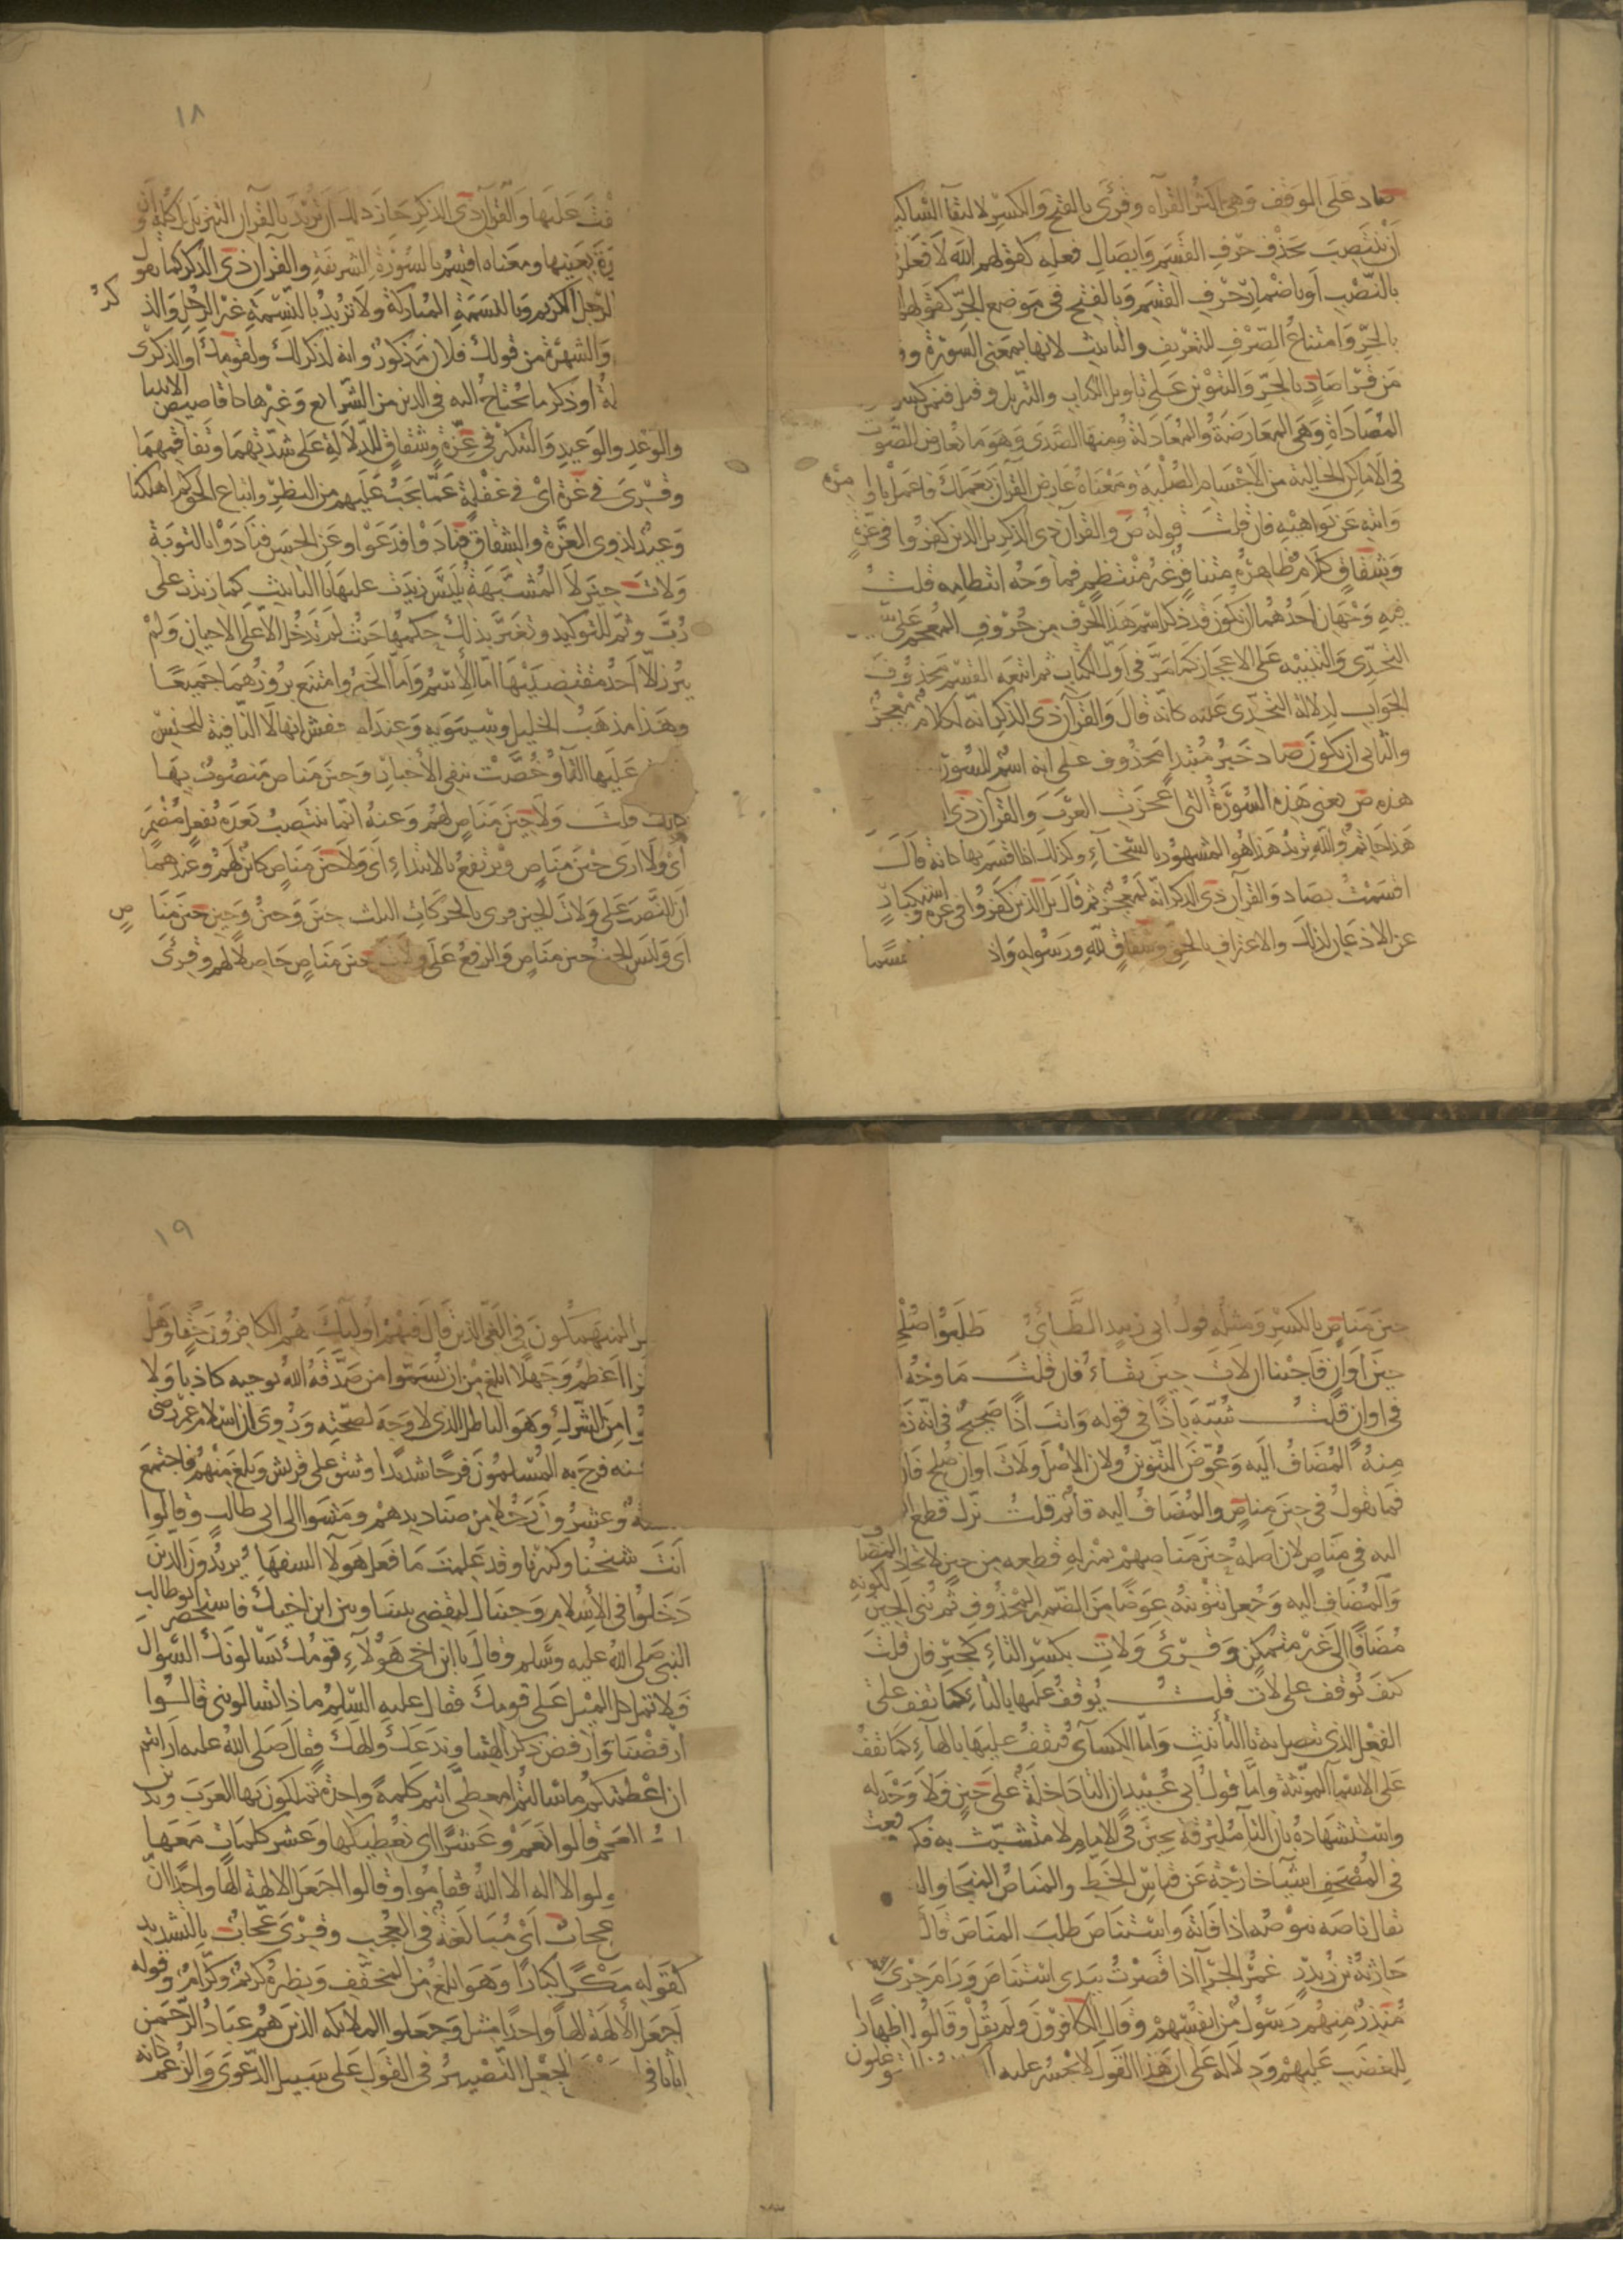 صاد على الوقف وهي اكثر القرآه وقرئ بالفتح والكسر لالتقآ الساكنين
ان ينتصب بحذف حرف القسم وايصال فعله كقولهم الله لافعلن
بالنصب او باضمار حرف القسم وبالفتح في موضع الجر كقولهم
بالجر وامتناع الصرف للتعريف والتانيث لانها بمعنى السورة
من قرا صاد بالجر والتنوين على تاويل الكتاب والتنزيل وقيل فيمن كسر
المصاداة وهي المعارضة والمعادلة ومنها الصدى وهو ما يعارض الصوت
في الاماكن الخالية من الاجسام الصلبة ومعناه عارض القرآن بعملك فاعمل باوامره
وانته عن نواهيه فان قلت قوله ص والقرآن ذي الذكر بل الذين كفروا في عزة
وشقاق كلام ظاهره متنافر غير منتظم فما وجه انتظامه قلت
فيه وجهان احدهما ان يكون قد ذكر اسم هذا الحرف من حروف المعجم على
التحدي والتنبيه على الاعجاز كما مر في اول الكتاب ثم اتبعه القسم محذوف
الجواب لدلالة التحدي عليه كانه قال والقرآن ذي الذكر انه لكلام معجز
والثاني ان يكون صاد خبر مبتدا محذوف على انه اسم للسورة
هذه ص يعني هذه السورة التي اعجزت العرب والقرآن ذي
هذا حاتم والله تريد هذا هو المشهور بالسخآء وكذلك اذا اقسم بها كانه قال
اقسمت بصاد والقرآن ذي الذكر انه لمعجز ثم قال بل الذين كفروا في عزة واستكبار
عن الاذعان لذلك والاعتراف بالحق وشقاق لله ورسوله واذا
١٨
عليها والقرآن ذي الذكر جاز ذلك ان تريد بالقرآن التنزيل كله وان
بعينها ومعناه اقسم بالسورة الشريفة والقرآن ذي الذكر كما تقول
الرجل الكريم وبالنسمة المباركة ولا تريد بالنسمة غير الرجل والذكر
والشهرة من قولك فلان مذكور وانه لذكر لك ولقومك او الذكرى
او ذكر ما يحتاج اليه في الدين من الشرايع وغيرها كاقاصيص الانبيا
والوعد والوعيد والتنكير في عزة وشقاق للدلالة على شدتهما وتفاقمهما
وقرئ في غرة اي في غفلة عما يجب عليهم من النظر واتباع الحق كم اهلكنا
وعيد لذوي العزة والشقاق فنادوا فدعوا وعن الحسن فنادوا بالتوبة
ولات حين لا المشبهة بليس زيدت عليها تا التانيث كما زيدت على
رب وثم للتوكيد وتغير بذلك حكمها حيث لم تدخل الا على الاحيان ولم
يبرز الا احد مقتضييها اما الاسم واما الخبر وامتنع بروزهما جميعا
وهذا مذهب الخليل وسيبويه وعند الاخفش انها لا النافية للجنس
عليها التآ وخصت بنفي الاحيان وحين مناص منصوب بها
كانك قلت ولا حين مناص لهم وعنه انما ينتصب بعده بفعل مضمر
اي ولا ارى حين مناص ويرتفع بالابتداء اي ولا حين مناص كائن لهم وعندهما
ان النصب على ولات الحين حين مناص
اي وليس الحين حين مناص والرفع على ولات حين مناص حاصلا لهم وقرئ
حين مناص بالكسر ومثله قول ابي زبيد الطائي طلبوا صلحنا
حين اوان فاجبنا ان لات حين بقاء فان قلت ما وجه
في اوان قلت شبه باذ في قوله وانت اذ صحيح في انه زمان
منه المضاف اليه وعوض التنوين ولان الاصل ولات اوان صلح فان
فما تقول في حين مناص والمضاف اليه قائم قلت نزل قطع المضاف
اليه في مناص لان اصله حين مناصهم بمنزلة قطعه من حين لاتحاد المضاف
والمضاف اليه وجعل تنوينه عوضا من الضمير المحذوف ثم بني الحين لكونه
مضافا الى غير متمكن وقرئ ولات بكسر التاء كجير فان قلت
كيف توقف على لات قلت يوقف عليها بالتاء كما تقف على
الفعل الذي تتصل به تا التأنيث واما الكسآئي فيقف عليها بالهآء كما تقف
على الاسما المونثة واما قول ابي عبيد ان التا داخلة على حين فلا وجه له
واستشهاده بان التآ ملتزقة بحين في الامام لا متشبث به فكم وقعت
في المصحف اشيآ خارجة عن قياس الخط والمناص المنجا والفوت
يقال ناصه ينوصه اذا فاته واستناص طلب المناص قال
حارثة بن بدر غمر الجرآ اذا قصرت بيدي استناص ورام جري
منذر منهم رسول من انفسهم وقال الكافرون ولم يقل وقالوا اظهارا
للغضب عليهم ودلالة على ان هذا القول لا يجسر عليه
١٩
المنهمكون في الغي الذين قال فيهم اوليك هم الكافرون حقا وهل
اعظم وجهلا ابلغ من ان يسموا من صدقه الله بوحيه كاذبا ولا
من الشرك وهو الباطل الذي لا وجه لصحته وروي ان اسلام عمر رضي
عنه فرح به المسلمون فرحا شديدا وشق على قريش وبلغ منهم فاجتمع
وعشرون رجلا من صناديدهم ومشوا الى ابي طالب وقالوا
انت شيخنا وكبيرنا وقد علمت ما فعل هولآ السفهآ يريدون الذين
دخلوا في الأسلام وجئناك لتقضي بيننا وبين ابن اخيك فاستحضر ابو طالب
النبي صلى الله عليه وسلم وقال يا ابن اخي هولآء قومك يسألونك السوال
ولا تمل كل الميل على قومك فقال عليه السلم ماذا تسالونني قالوا
ارفضنا وارفض ذكر الهتنا وندعك والهك فقال صلى الله عليه ارايتم
ان اعطيتكم ما سالتم امعطي انتم كلمة واحدة تملكون بها العرب وتدين
العجم قالوا نعم وعشرا اي نعطيكها وعشر كلمات معها
قولوا لا اله الا الله فقاموا وقالوا اجعل الالهة الها واحدا ان
عجاب اي مبالغة في العجب وقرئ عجاب بالتشديد
كقوله مكرا كبارا وهو ابلغ من المخفف ونظيره كريم وكرام وقوله
اجعل الألهة الها واحدا مثل وجعلوا الملائكه الذين هم عباد الرحمن
اناثا في الجعل التصيير في القول على سبيل الدعوى والزعم كانه